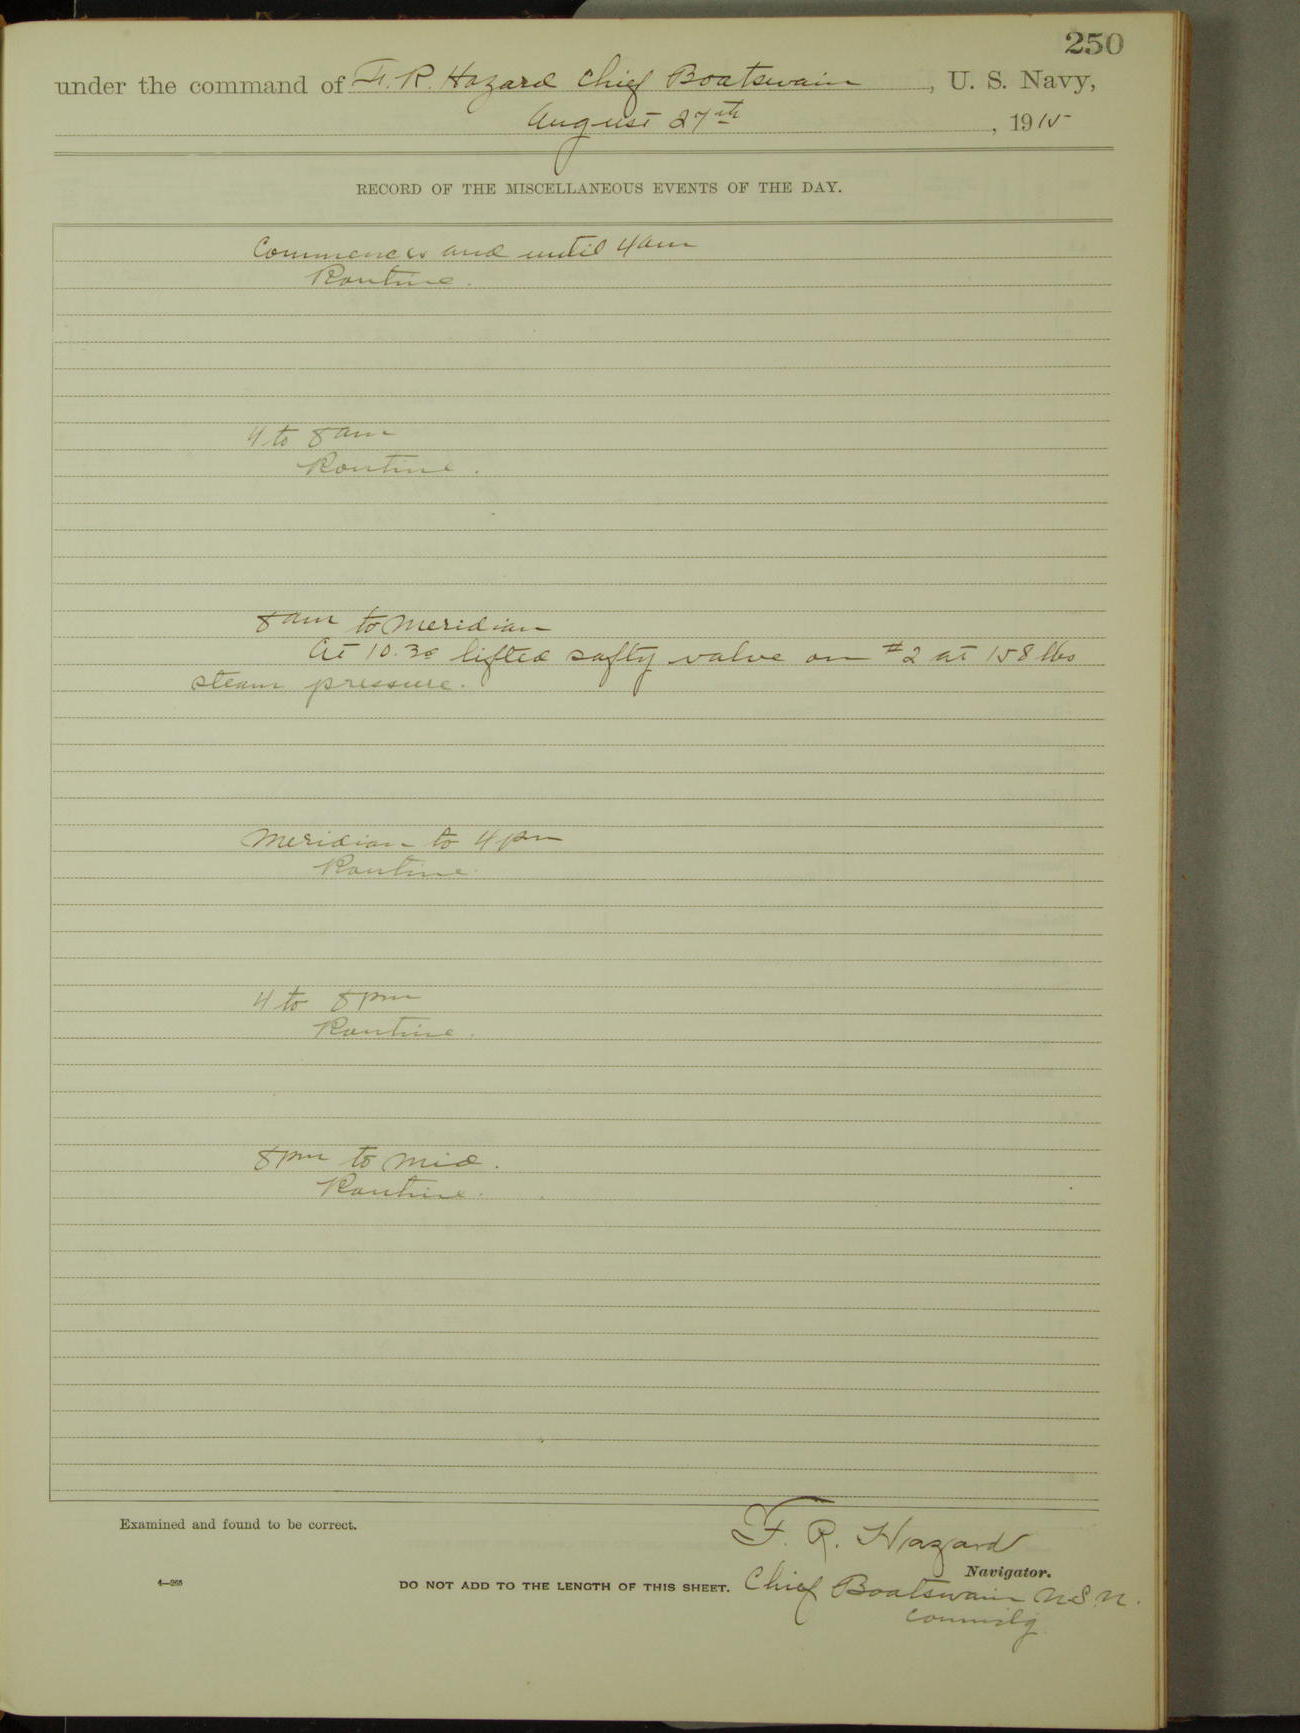 250
under the command of F. R. Hazard Chief Boatswain, U. S. Navy,
August 27th, 1915
RECORD OF THE MISCELLANEOUS EVENTS OF THE DAY.
Commences and until 4 am
Routine.
4 to 8 am
Routine.
8 am to Meridian
At 10.30 lifted safty valve on #2 at 158 lbs
steam pressure.
Meridian to 4 pm
Routine.
4 to 8 pm
Routine.
8 pm to Mid.
Routine.
Examined and found to be correct.
F. R. Hazard
Navigator.
4—268
DO NOT ADD TO THE LENGTH OF THIS SHEET.
Chief Boatswain U.S.N.